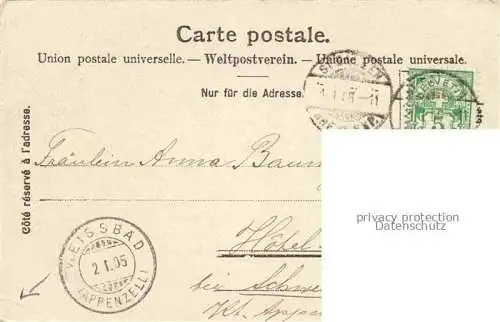 Carte postale.
Union postale universelle. — Weltpostverein. — Unione postale universale.
Nur für die Adresse.
Côté réservé à l'adresse.
Fräulein Anna
Hôtel
bei Schwe
Kt. Appen
WEISSBAD
2 I. 05
(APPENZELL)
HELVETIA
5
privacy protection
Datenschutz